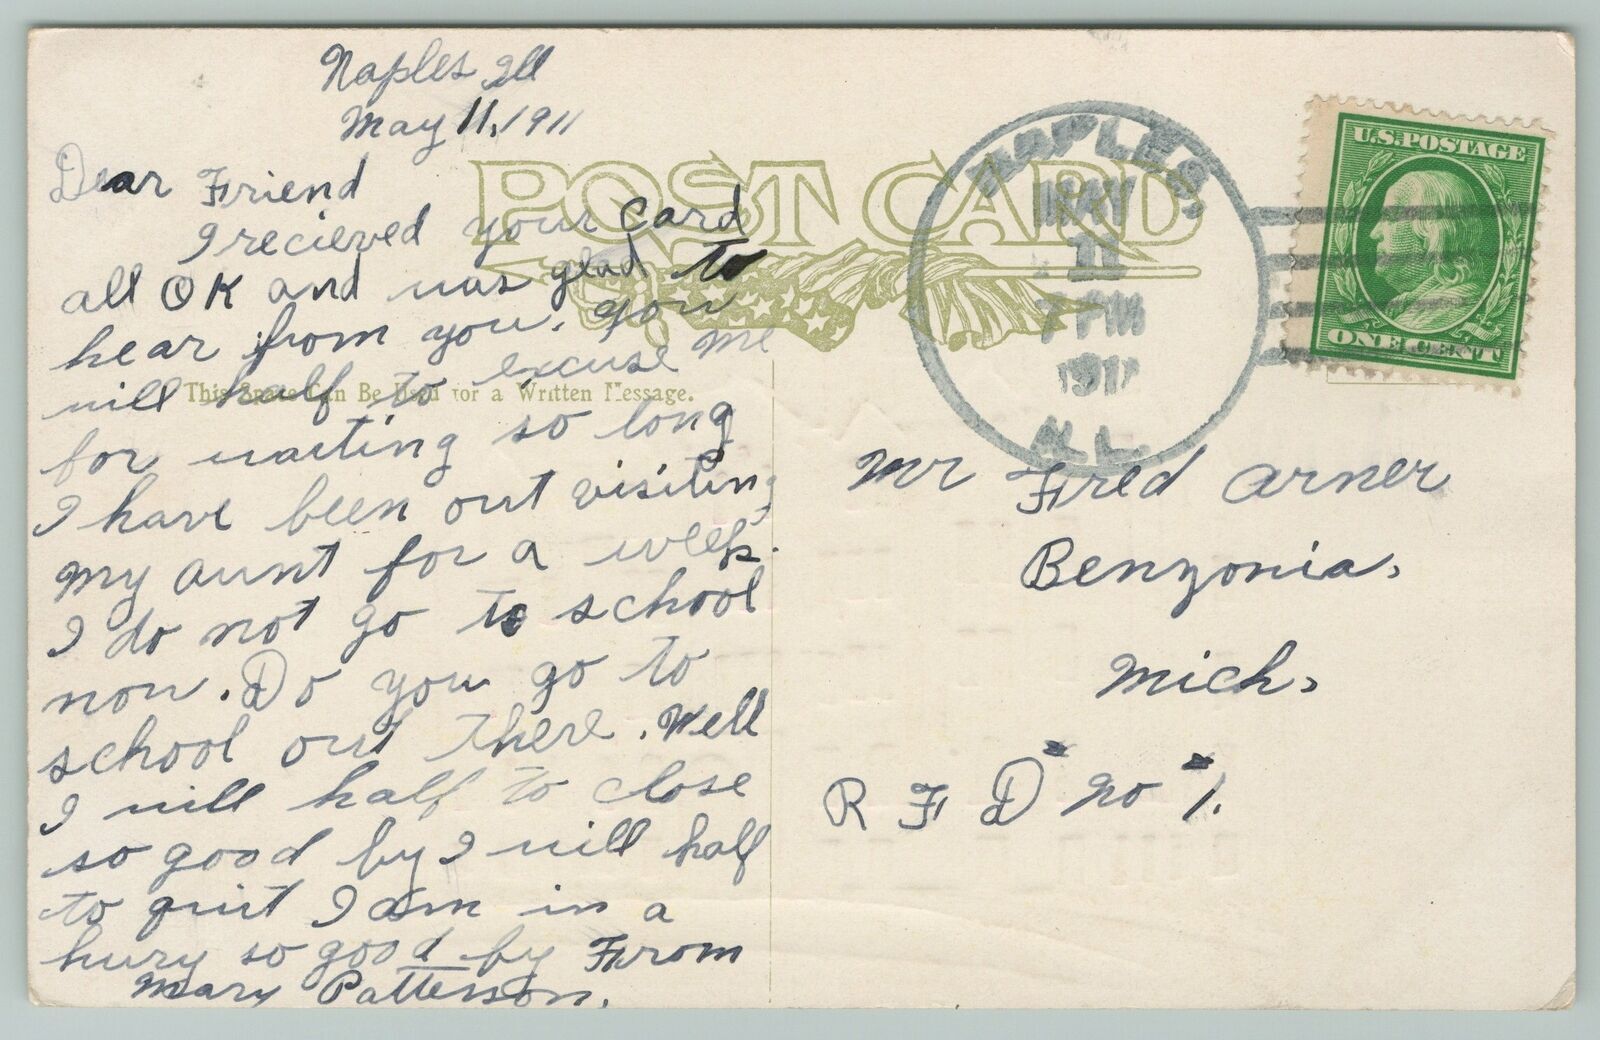 Naples Ill
May 11, 1911
Dear Friend
I recieved your card
all OK and was glad to
hear from you. you
will half to excuse me
for waiting so long
I have been out visiting
my aunt for a week.
I do not go to school
now. Do you go to
school out there. Well
I will half to close
so good by I will half
to quit I am in a
hury so good by From
Mary Patterson.
POST CARD
This Space Can Be Used for a Written Message.
NAPLES,
MAY
11
7 PM
1911
ILL.
U.S. POSTAGE
ONE CENT
Mr Fred Arner
Benzonia,
Mich,
R F D no 1.